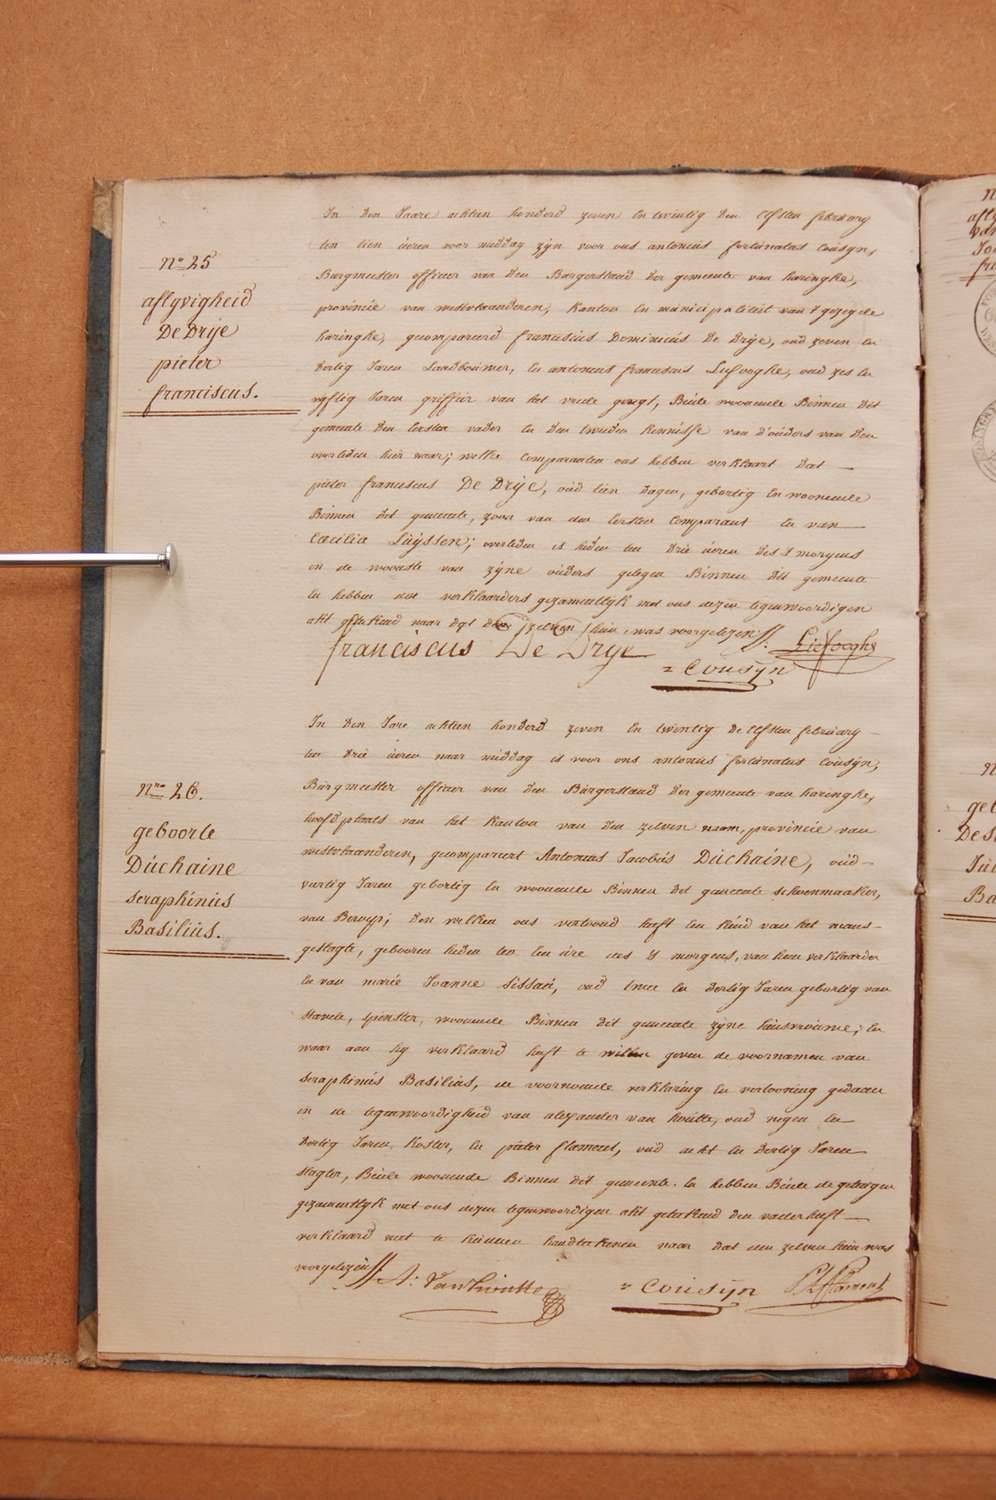 n.º 25
aflyvigheid
De Drÿe
pieter
franciscus.
In den Jaare achtien honderd zeven en twintig den elfsten februarÿ
ten tien ueren voor middag zÿn voor ons antonius fortunatus Cousÿn,
Burgmeester officier van den Burgerstaad der gemeente van haringhe,
provincie van westvlaanderen, kanton en municipaliteit van 't gezegde
haringhe, gecompareerd franciscus Dominicus De Drÿe, oud zeven en
dertig Jaren Landbouwer, en antonius franciscus Liefooghe, oud zes en
vÿftig Jaren griffier van het vrede geregt, Beide woonende Binnen dit
gemeente den eersten vader en den tweeden kennisse van d'ouders van den
overleden hier naar; welke comparanten ons hebben verklaart dat
pieter franciscus De Drÿe, oud tien dagen, gebortig en woonende
Binnen dit gemeente, zoon van den eersten Comparant en van
Cacilia Luÿssen; overleden is heden ten drie ueren des 's morgens
in de woonste van zÿne ouders gelegen Binnen dit gemeente
en hebben de verklaarders gezamentlyk met ons dezen tegenwoordigen
akt geteekend naar dat den zelven hun was voorgelezen
franciscus De Drÿe Liefooghe
= Cousÿn
Nro 26.
geboorte
Duchaine
seraphinus
Basilius.
In den Jare achtien honderd zeven en twintig de elfsten februarÿ
ten drie ueren naar middag is voor ons antonius fortunatus Cousÿn,
Burgmeester officier van den Burgerstaad der gemeente van haringhe,
hoofdplaats van het kanton van den zelven naam, provincie van
westvlaanderen, gecompareert Antonius Jacobus Duchaine, oud
veertig Jaren gebortig en woonende Binnen dit gemeente schoenmaaker,
van Beroep; den welken ons vertoond heeft een kind van het mans-
geslagte, gebooren heden ten een ure des 's morgens, van hem verklaarder
en van marie Joanne Sissau, oud twee en dertig Jaren gebortig van
Stavele, spinster, woonende Binnen dit gemeente zÿne huisvrouwe; en
waar aan hÿ verklaard heeft te willen geven de voornamen van
seraphinus Basilius, de voornoemde verklaring en vertooning gedaan
in de tegenwoordigheid van alexander van houtte, oud negen en
dertig Jaren, koster, en pieter flament, oud acht en dertig Jaren
slagter, Beide woonende Binnen dit gemeente. en hebben Beide de getuigen
gezamentlyk met ons dezen tegenwoordigen akt geteekend den vader heeft
verklaard niet te kunnen handteekenen naar dat den zelven hun was
voorgelezen A: Van houtte = Cousÿn P L fflament